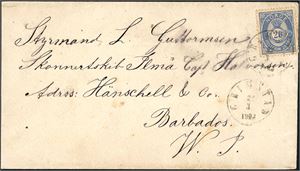 Styrmand L. Guttormsen
Skonnertskib Ilma Cpt Halvorsen
Adrss: Hänschell & Co.
Barbados.
W. I.
20
GRIMSTAD